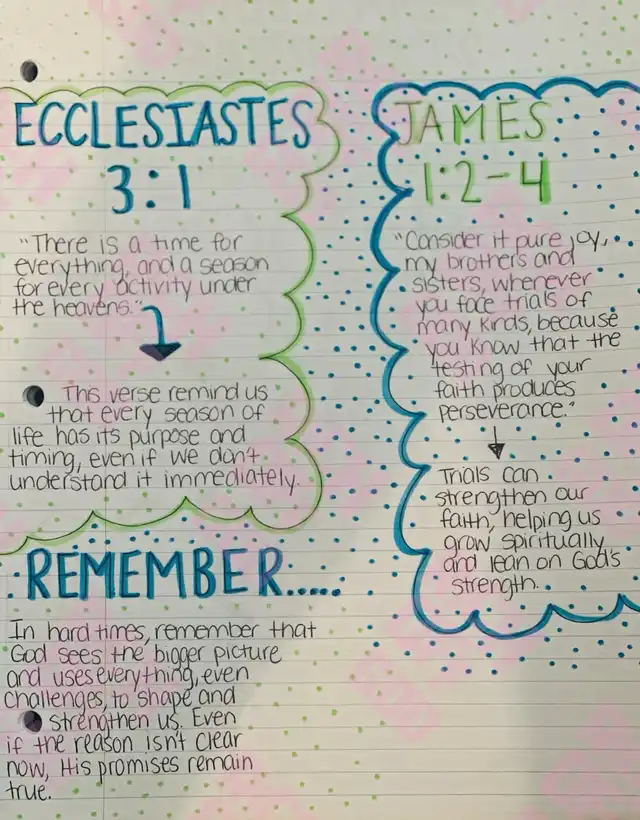 ECCLESIASTES
3:1
"There is a time for
everything, and a season
for every activity under
the heavens."
This verse remind us
that every season of
life has its purpose and
timing, even if we don't
understand it immediately.
JAMES
1:2-4
"Consider it pure joy,
my brothers and
sisters, whenever
you face trials of
many kinds, because
you know that the
testing of your
faith produces
perseverance."
Trials can
strengthen our
faith, helping us
grow spiritually
and lean on God's
strength.
REMEMBER.....
In hard times, remember that
God sees the bigger picture
and uses everything, even
challenges, to shape and
strengthen us. Even
if the reason isn't clear
now, His promises remain
true.